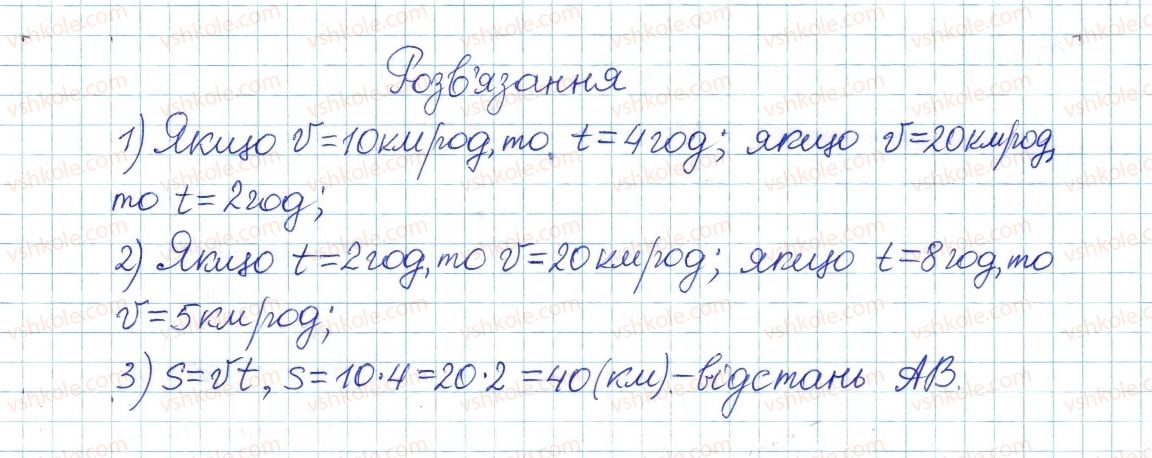 Розв'язання
1) Якщо v=10км/год, то t=4год; якщо v=20км/год,
то t=2год;
2) Якщо t=2год, то v=20км/год; якщо t=8год, то
v=5км/год;
3) s=vt, s=10·4=20·2=40(км)-відстань AB.